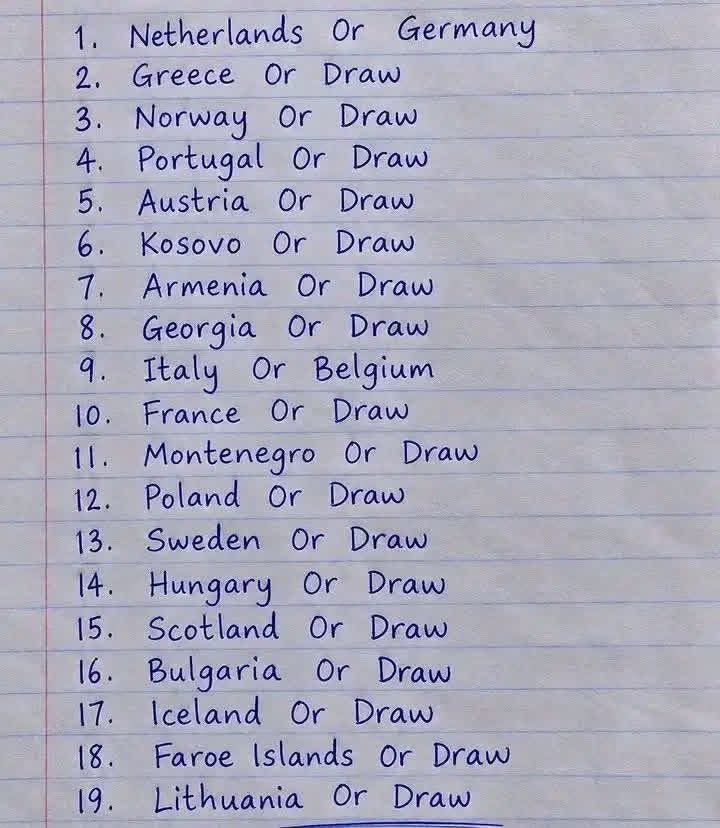 1. Netherlands Or Germany
2. Greece Or Draw
3. Norway Or Draw
4. Portugal Or Draw
5. Austria Or Draw
6. Kosovo Or Draw
7. Armenia Or Draw
8. Georgia Or Draw
9. Italy Or Belgium
10. France Or Draw
11. Montenegro Or Draw
12. Poland Or Draw
13. Sweden Or Draw
14. Hungary Or Draw
15. Scotland Or Draw
16. Bulgaria Or Draw
17. Iceland Or Draw
18. Faroe Islands Or Draw
19. Lithuania Or Draw